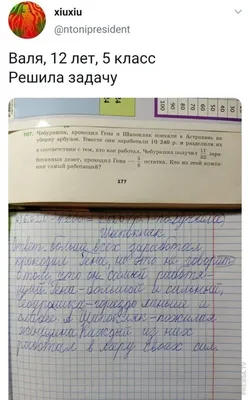 xiuxiu
@ntonipresident
Валя, 12 лет, 5 класс
Решила задачу
100
90
80
70
60
50
40
24
107. Чебурашка, крокодил Гена и Шапокляк поехали в Астрахань на
уборку арбузов. Вместе они заработали 10 240 р. и разделили их
в соответствии с тем, кто как работал. Чебурашка получил 11/32 зара-
ботанных денег, крокодил Гена — остатка. Кто из этой компа-
нии самый работящий?
177
получила,
Шапокляк
больше всех заработал
крокодил Гена, но это не говорит
о том, что он самый работя-
щий. Гена - большой и сильный,
Чебурашка - гораздо меньше и
слабее. А Шапокляк - пожилая
женщина. Каждый из них
работал в меру своих сил.